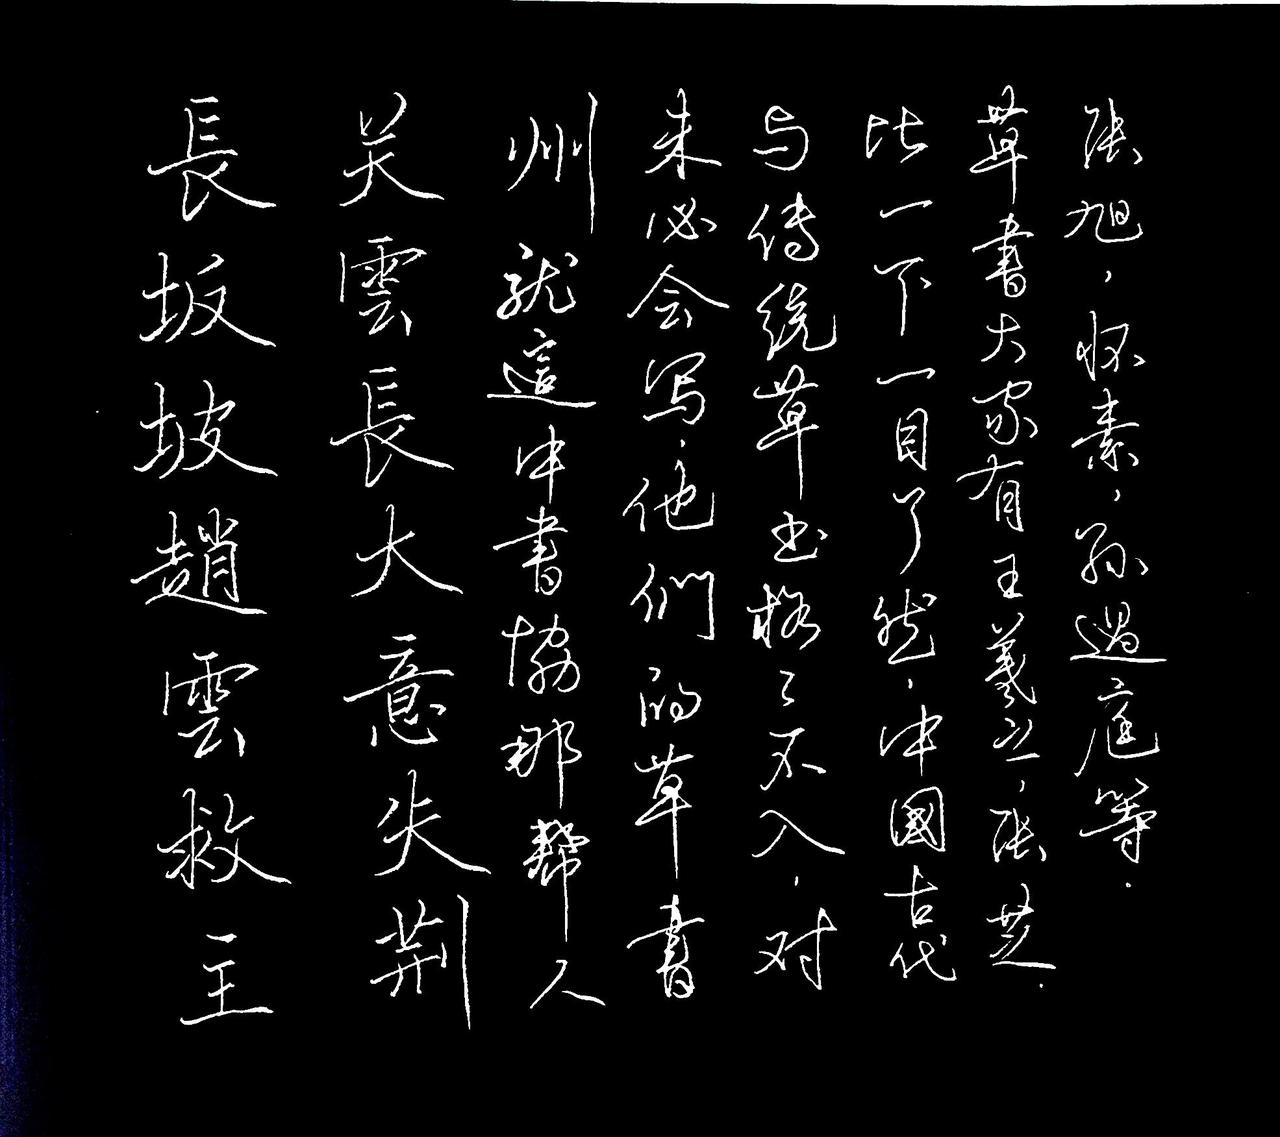 長坂坡趙雲救主
关雲長大意失荆
州就這中書協那幫人
未必会写，他們的草書
与传统草书格々不入，对
比一下一目了然，中國古代
草書大家有王羲之，张芝.
张旭，怀素，孙過庭等.